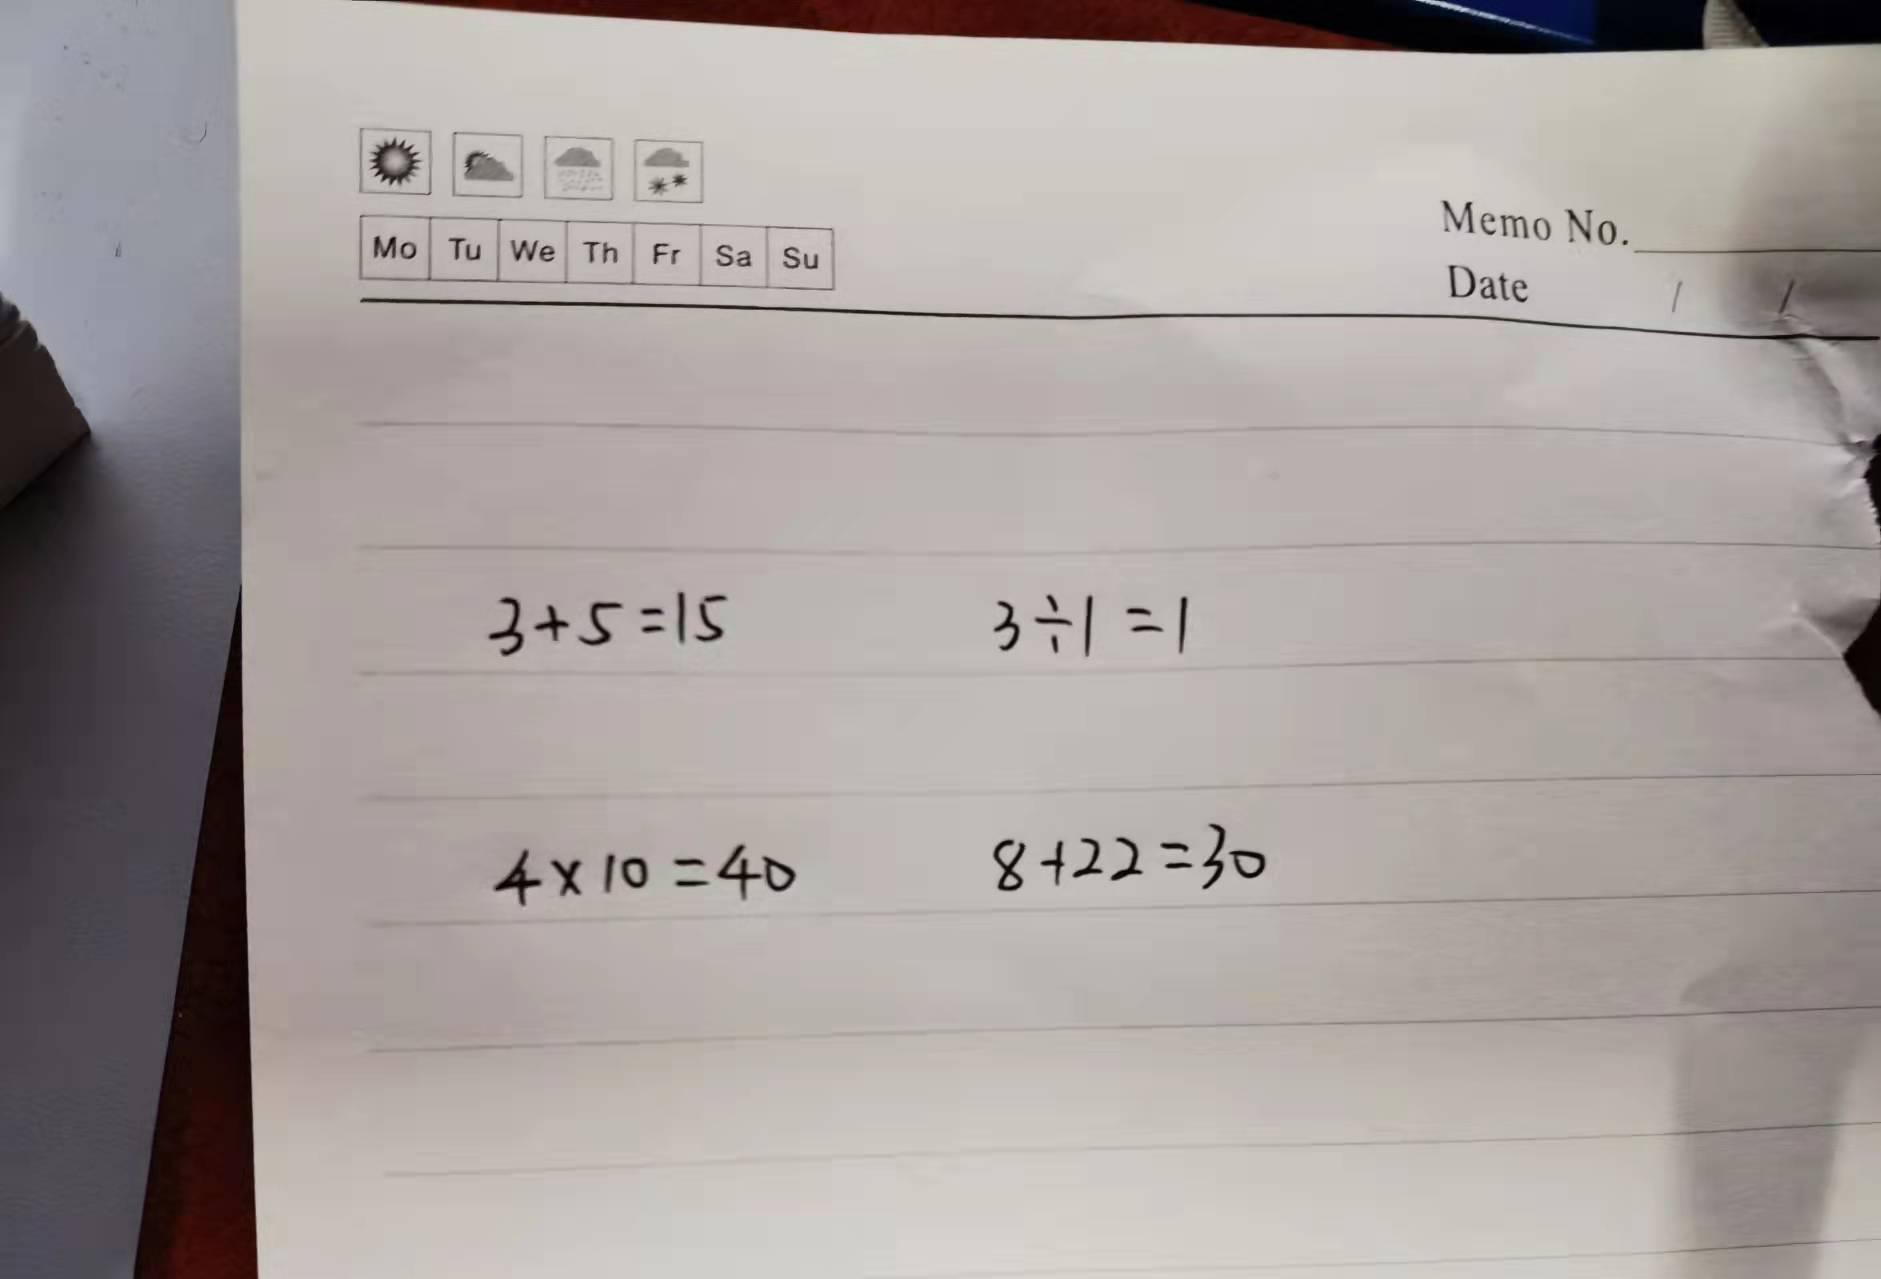 Mo Tu We Th Fr Sa Su
Memo No.
Date / /
3+5=15 3÷1=1
4×10=40 8+22=30